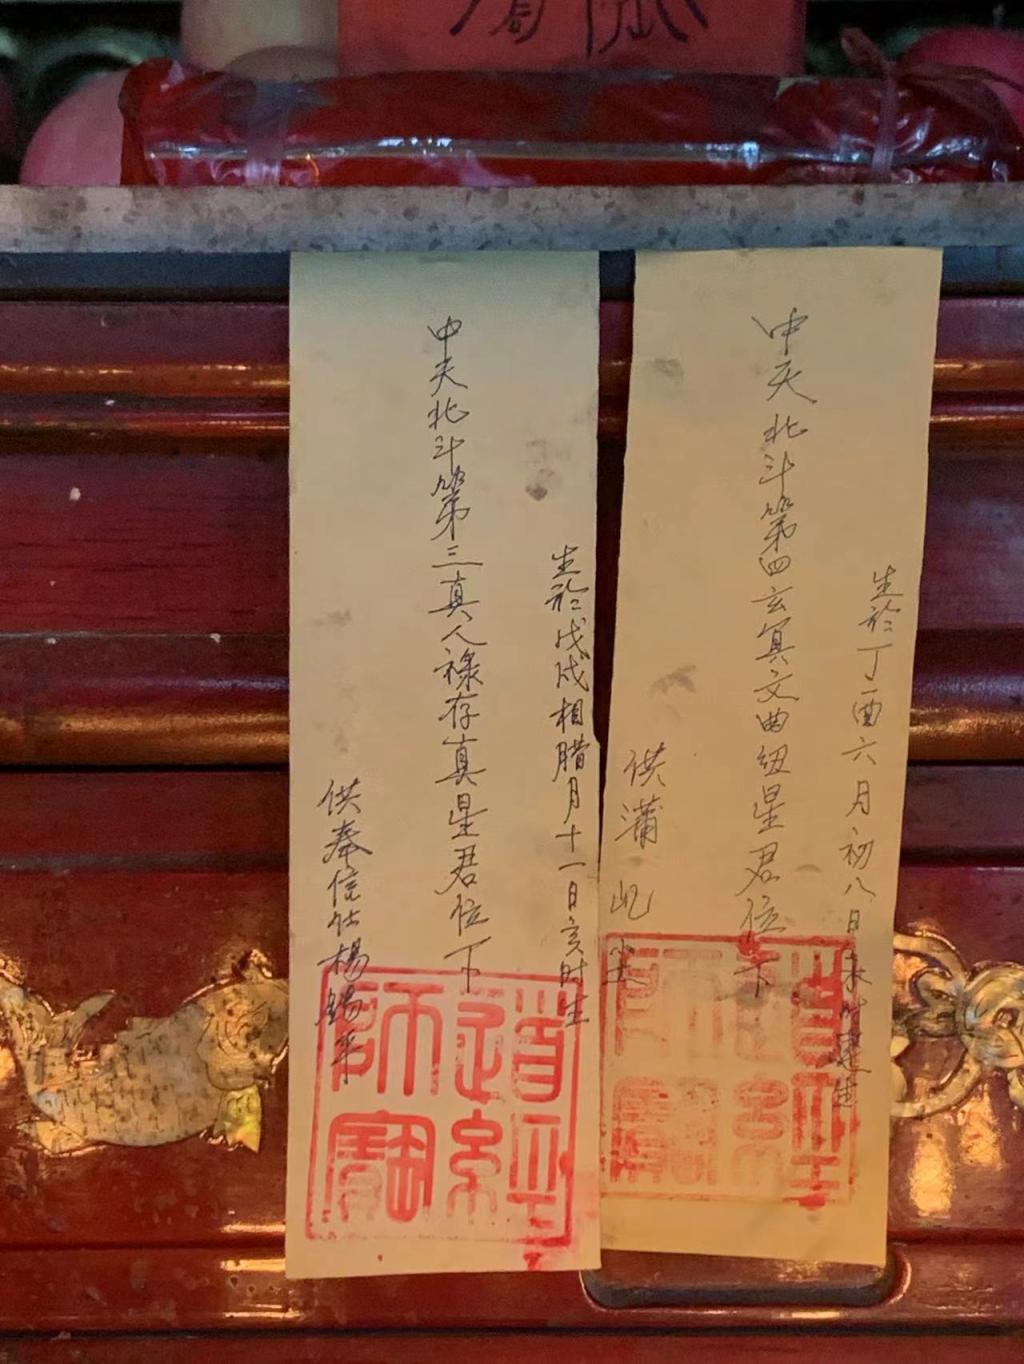 生於戊戌相腊月十一日亥时生
中天北斗第三真人禄存真星君位下
供奉信仕楊錫平
道經師寶
生於丁酉六月初八日未时建生
中天北斗第四玄冥文曲纽星君位下
供蒲
道經師寶